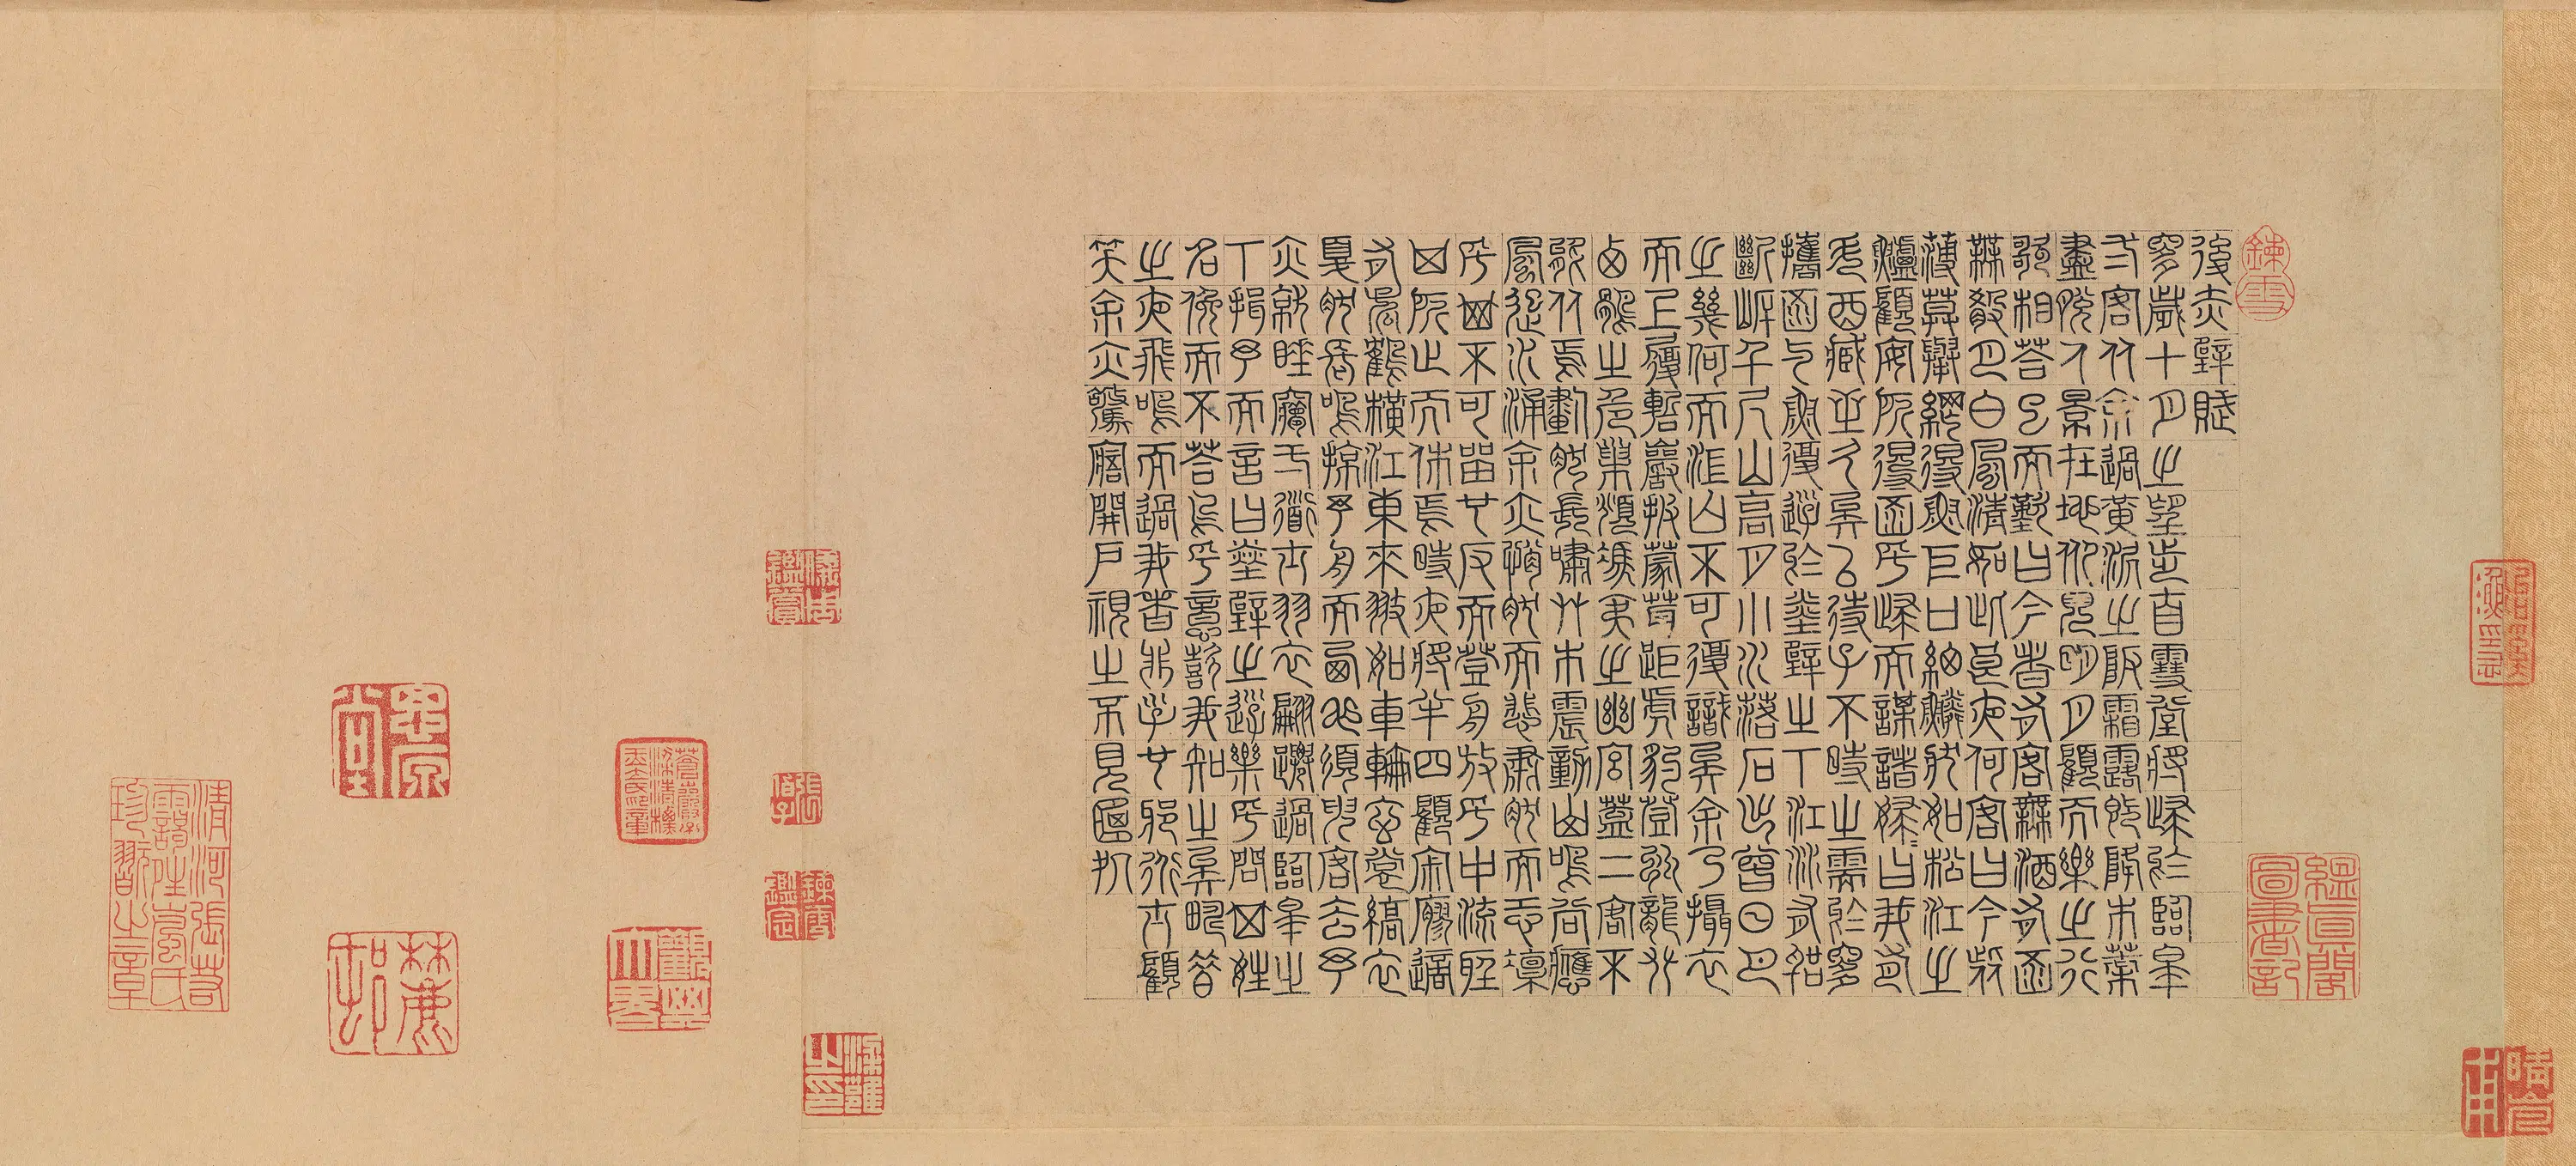 鍊雪
後赤壁賦
是歲十月之望步自雪堂將歸於臨皋
二客从余過黃泥之阪霜露既降木葉
盡脫人景在地仰見明月顧而樂之行
歌相荅已而歎曰今者有客無酒有酒
無肴月白風清如此良夜何客曰今者
薄莫舉網得魚巨口細鱗狀如松江之
鱸顧安所得酒乎歸而謀諸婦婦曰我有
斗酒藏之久矣以待子不時之需於是
攜酒與魚復遊於赤壁之下江流有聲
斷岸千尺山高月小水落石出曾日月
之幾何而江山不可復識矣余乃攝衣
而上履巉巖披蒙茸踞虎豹登虯龍攀
栖鶻之危巢俯馮夷之幽宮蓋二客不
能从焉劃然長嘯草木震動山鳴谷應
風起水涌余亦悄然而悲肅然而恐凜
乎其不可留也反而登舟放乎中流聽
其所止而休焉時夜將半四顧寂寥適
有孤鶴橫江東來翅如車輪玄裳縞衣
戛然長鳴掠予舟而西也須臾客去予
亦就睡夢一道士羽衣翩躚過臨皋之
下揖予而言曰赤壁之遊樂乎問其姓
名俛而不荅嗚呼噫嘻我知之矣疇昔
之夜飛鳴而過我者非子也邪道士顧
笑余亦驚寤開戶視之不見其處
鍊雪鑑定
蒼巖子梁清標玉立氏印章
觀其大略